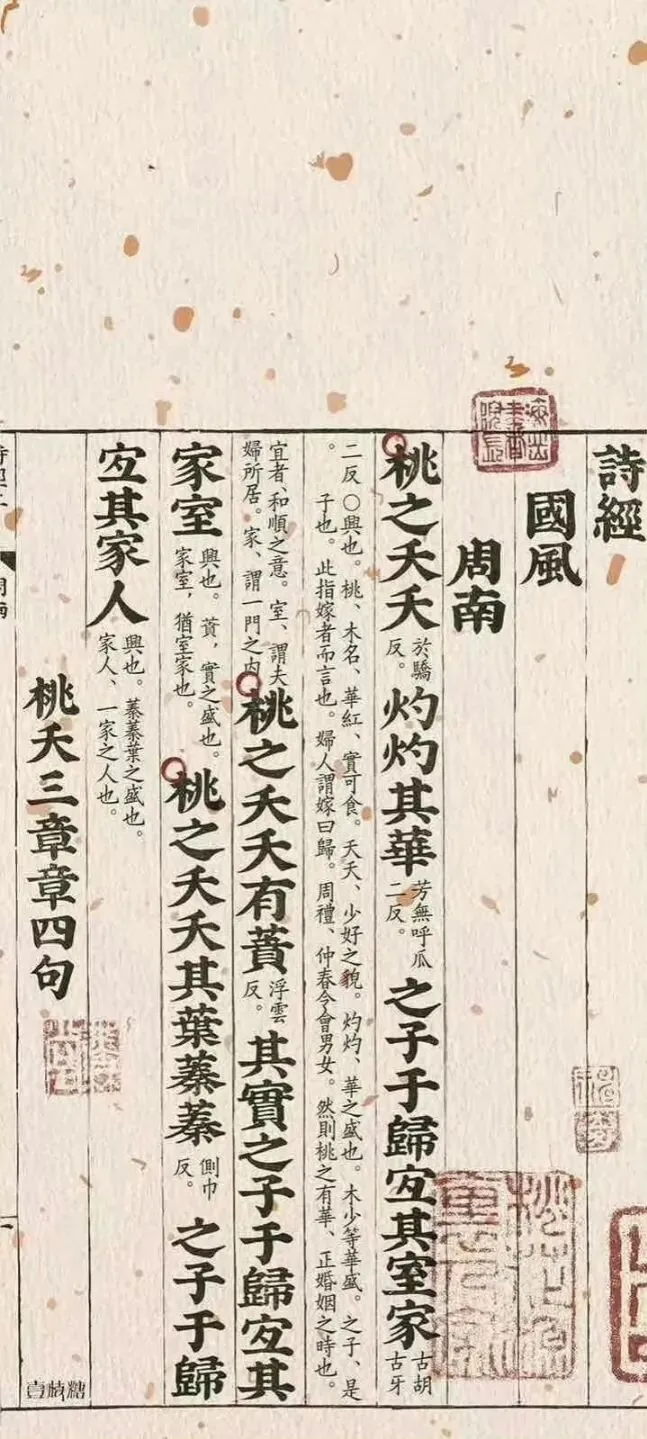 詩經
國風
周南
桃之夭夭於驕反。灼灼其華芳無呼瓜二反。之子于歸宜其室家古胡古牙
二反○興也。桃、木名、華紅、實可食。夭夭、少好之貌。灼灼、華之盛也。木少等華盛。之子、是
子也。此指嫁者而言也。婦人謂嫁曰歸。周禮、仲春令會男女。然則桃之有華、正婚姻之時也。
宜者、和順之意。室、謂夫
婦所居。家、謂一門之内
。桃之夭夭有蕡浮雲反。其實之子于歸宜其
家室興也。蕡，實之盛也。家室，猶室家也。桃之夭夭其葉蓁蓁側巾反。之子于歸
宜其家人興也。蓁蓁葉之盛也。家人、一家之人也。
桃夭三章章四句
壹枝糖